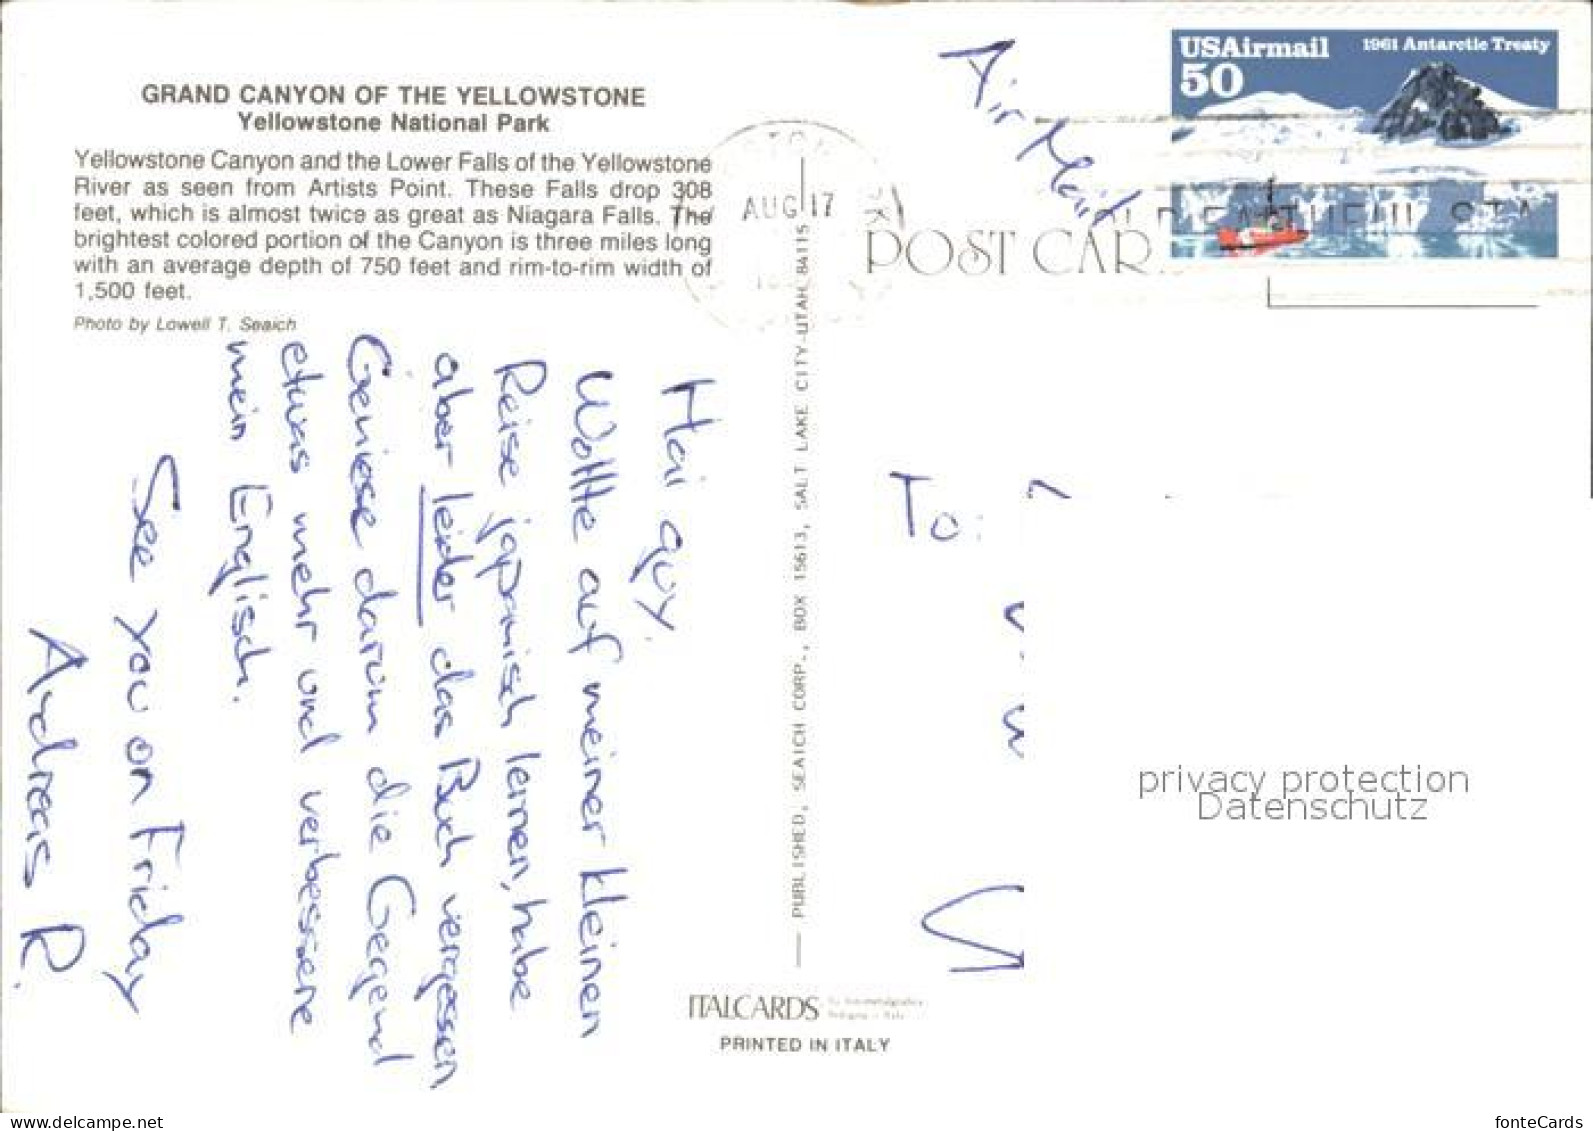 GRAND CANYON OF THE YELLOWSTONE
Yellowstone National Park
Yellowstone Canyon and the Lower Falls of the Yellowstone
River as seen from Artists Point. These Falls drop 308
feet, which is almost twice as great as Niagara Falls. The
brightest colored portion of the Canyon is three miles long
with an average depth of 750 feet and rim-to-rim width of
1,500 feet.
Photo by Lowell T. Seaich
Hai guy.
Wollte auf meiner kleinen
Reise japanisch lernen, habe
aber leider das Buch vergessen
Geniesse darum die Gegend
etwas mehr und verbessere
mein Englisch.
See you on Friday
Andreas R.
AUG 17
PUBLISHED, SEAICH CORP., BOX 15613, SALT LAKE CITY-UTAH 84115
ITALCARDS
PRINTED IN ITALY
Air Mail
POST CAR
USAirmail
50
1961 Antarctic Treaty
To:
privacy protection
Datenschutz
www.delcampe.net
fonteCards